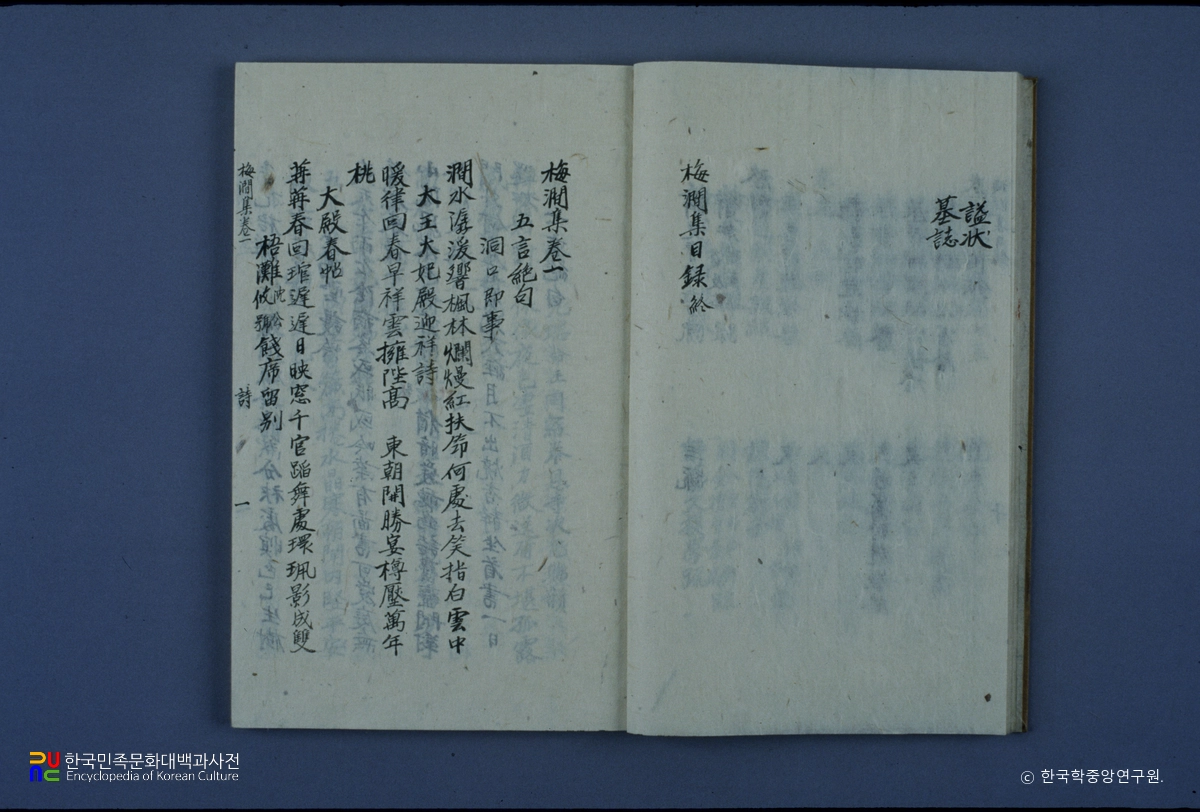 諡狀
墓誌
梅澗集目録終
梅澗集卷一
五言絶句
洞口即事
澗水潺湲響楓林爛熳紅扶筇何處去笑指白雲中
大王大妃殿迎祥詩
暖律回春早祥雲擁陛高 東朝開勝宴樽壓萬年
桃
大殿春帖
苒苒春回琯遲遲日映窓千官蹈舞處環珮影成雙
梧灘攸號餞席留别
沈公
梅澗集卷一 詩 一
한국민족문화대백과사전
Encyclopedia of Korean Culture
© 한국학중앙연구원.